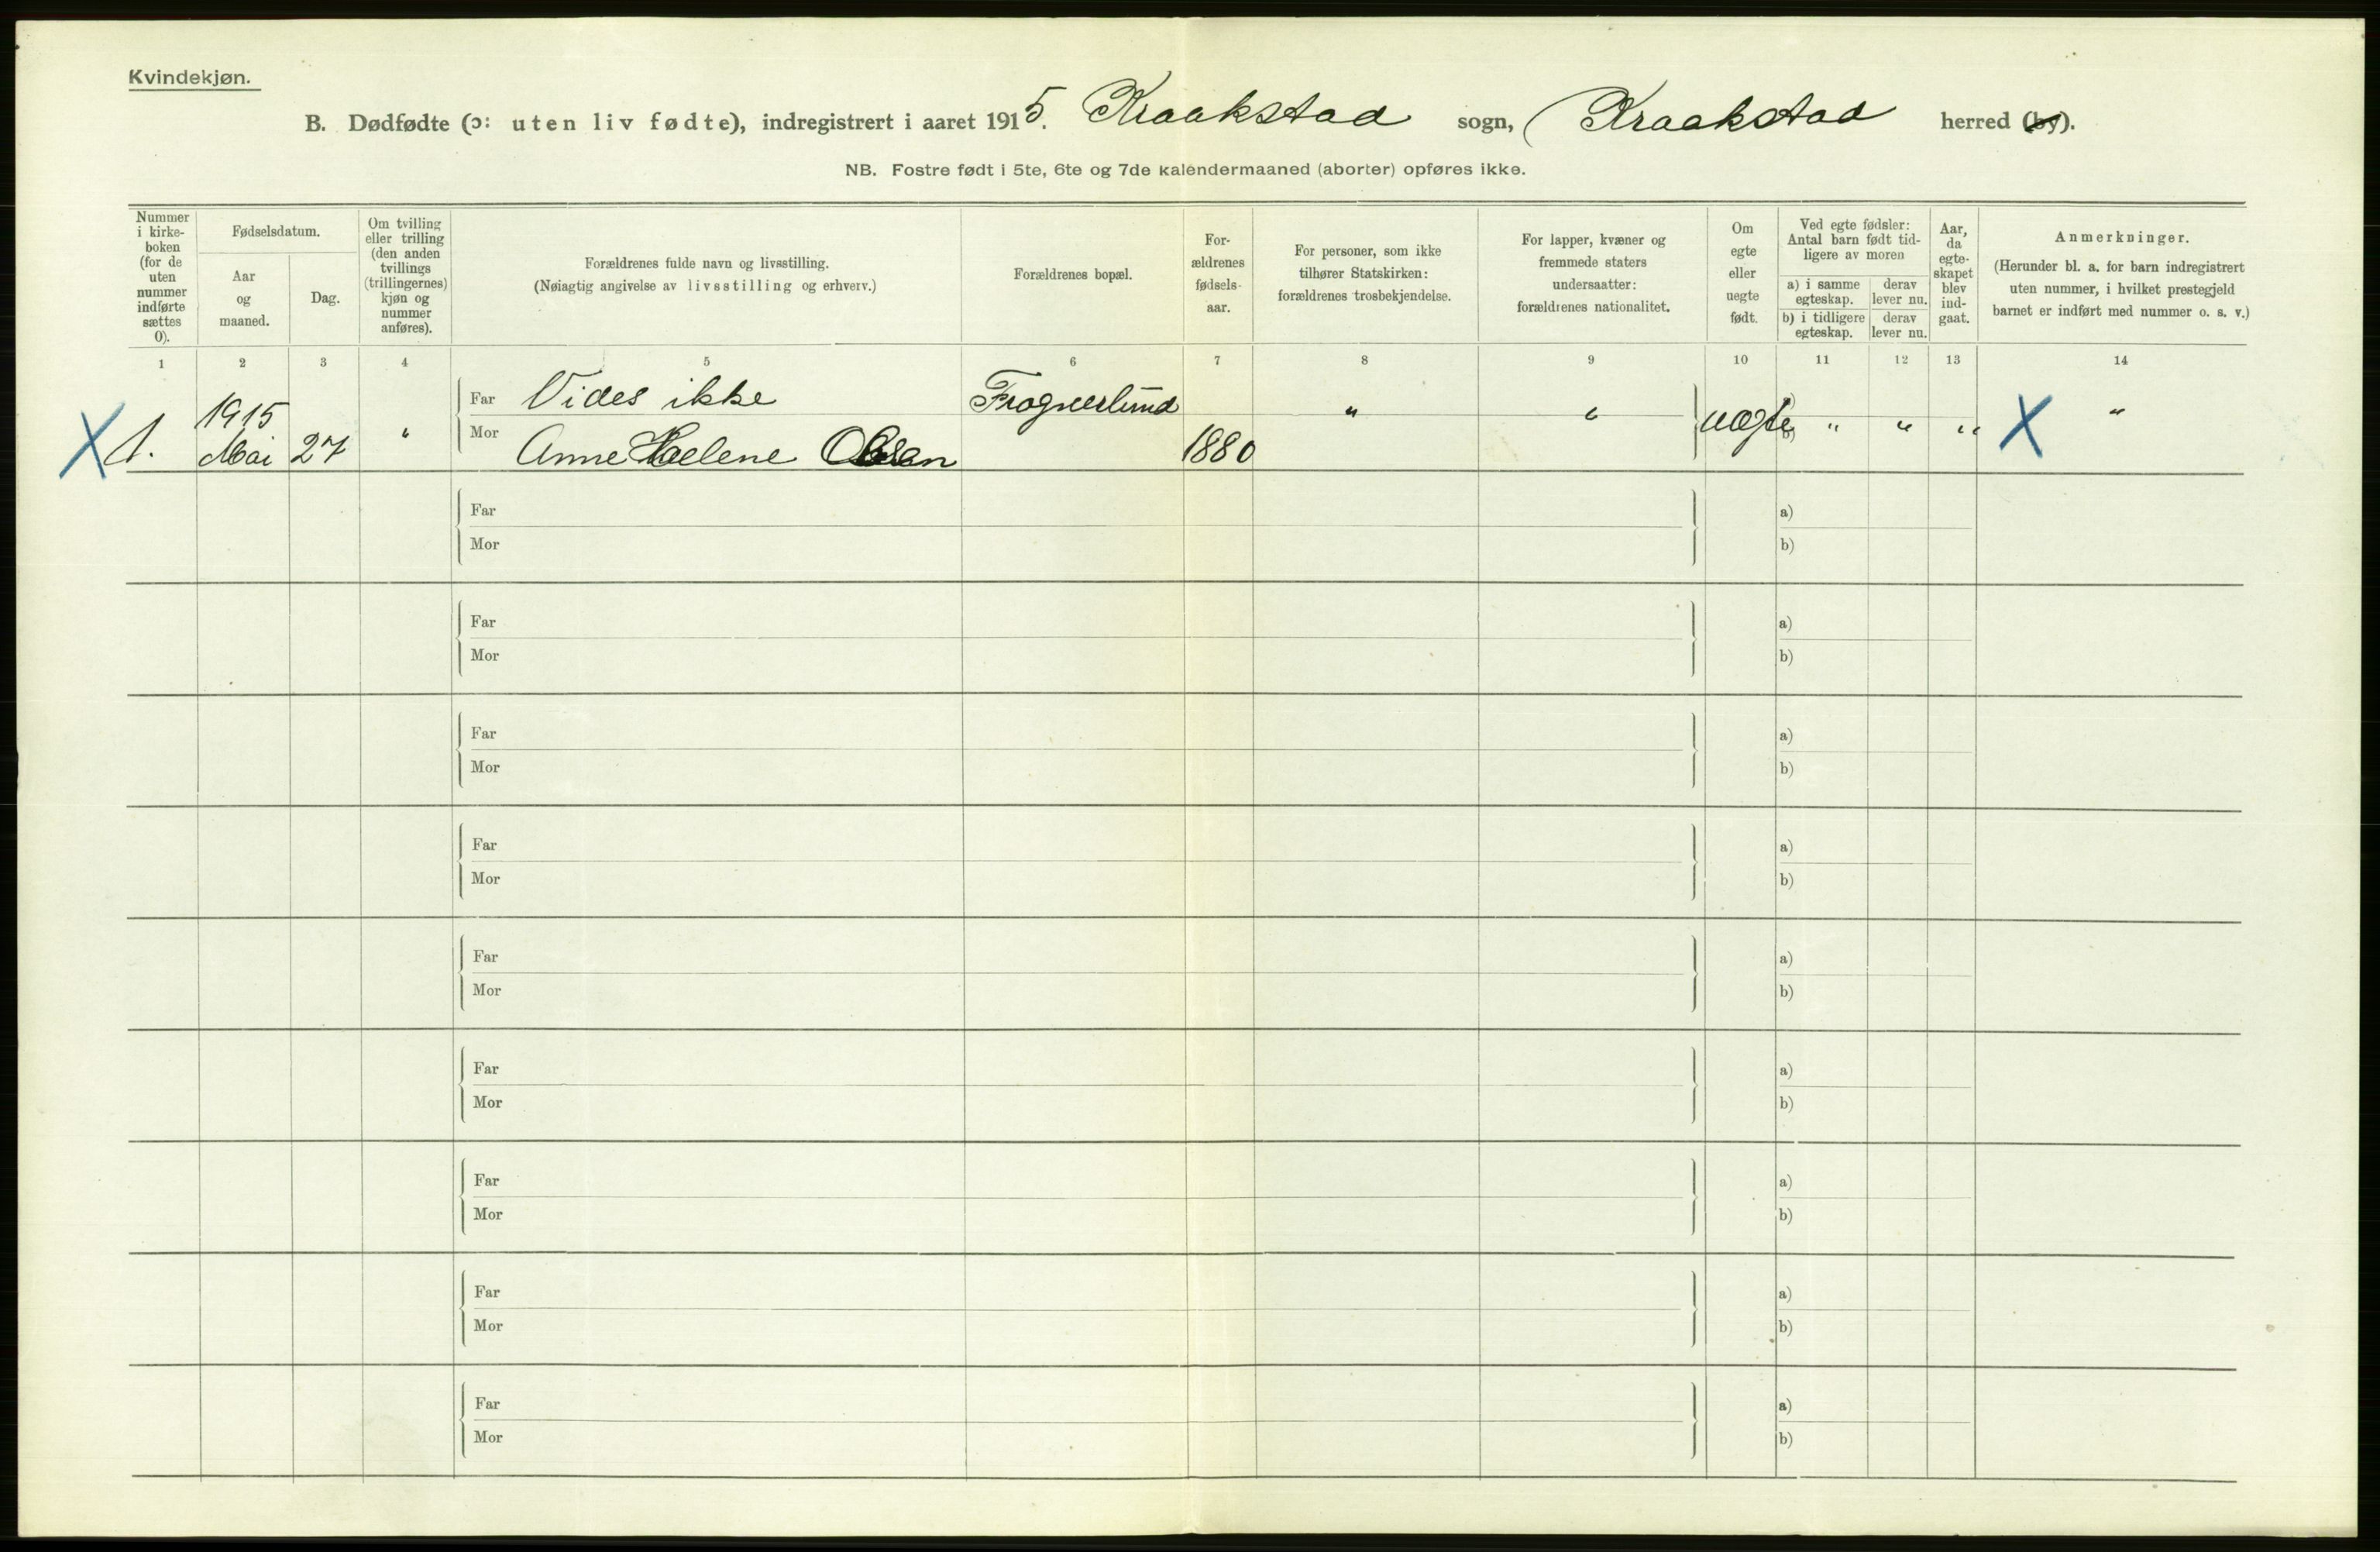 Kvindekjøn.
B. Dødfødte (ɔ: uten liv fødte), indregistrert i aaret 1915. Kraakstad sogn, Kraakstad herred (by).
NB. Fostre født i 5te, 6te og 7de kalendermaaned (aborter) opføres ikke.
Nummer i kirke- boken (for de uten nummer indførte sættes 0).
Fødselsdatum.
Aar og maaned.
Dag.
Om tvilling eller trilling (den anden tvillings (trillingernes) kjøn og nummer anføres).
Forældrenes fulde navn og livsstilling.
(Nøiagtig angivelse av livsstilling og erhverv.)
Forældrenes bopæl.
For- ældrenes fødsels- aar.
For personer, som ikke tilhører Statskirken: forældrenes trosbekjendelse.
For lapper, kvæner og fremmede staters undersaatter: forældrenes nationalitet.
Om egte eller uegte født.
Ved egte fødsler: Antal barn født tid- ligere av moren
a) i samme egteskap.
derav lever nu.
b) i tidligere egteskap.
derav lever nu.
Aar, da egte- skapet blev ind- gaat.
Anmerkninger.
(Herunder bl. a. for barn indregistrert uten nummer, i hvilket prestegjeld barnet er indført med nummer o. s. v.)
1 2 3 4 5 6 7 8 9 10 11 12 13 14
X 1. 1915 Mai 27 "
Far Vides ikke Frognerlund " " uegte " " " X "
Mor Anne Helene Olsen 1880 b)
Far a)
Mor b)
Far a)
Mor b)
Far a)
Mor b)
Far a)
Mor b)
Far a)
Mor b)
Far a)
Mor b)
Far a)
Mor b)
Far a)
Mor b)
Far a)
Mor b)